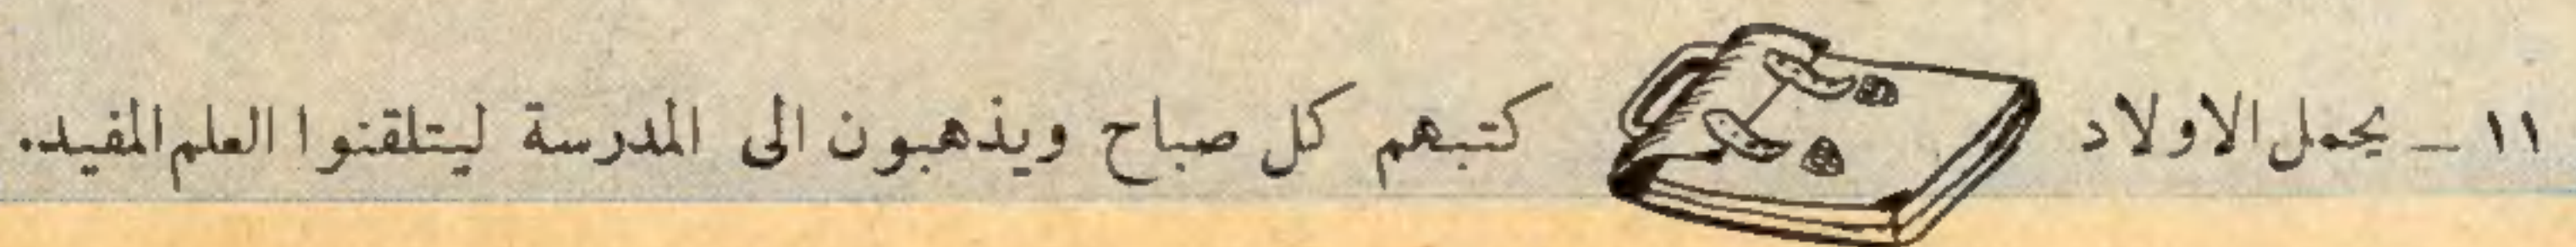 ١١ ـ يحمل الاولاد كتبهم كل صباح ويذهبون الى المدرسة ليتلقنوا العلم المفيد.